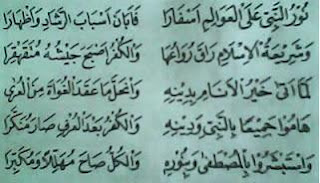 نُوْرُ النَّبِيِّ عَلَى الْعَوَالِمِ اَسْفَارَا فَاَبَانَ اَسْبَابَ الرَّشَادِ وَاَظْهَارَا
وَشَرِيْعَةُ الْاِسْلَامِ رَاقَ رُوَاتُهَا وَالْكُفْرُ اَصْبَحَ جَيْشُهُ مُتَقَهْقِرَا
لَمَّا اَتٰى خَيْرُ الْاَنَامِ بِدِيْنِهِ وَانْحَلَّ مَا عَقَدَ الْغُوَاةُ مِنَ الْعُرٰى
هَامُوْا جَمِيْعًا بِالنَّبِيْ وَدِيْنِهِ وَالْكُفْرُ بَعْدَ الْعُرْفِ صَارَ مُنَكَّرَا
وَاسْتَبْشَرُوْا بِالْمُصْطَفٰى وَبِنُوْرِهِ وَالْكُلُّ صَاحَ مُهَلِّلًا وَمُكَبِّرَا